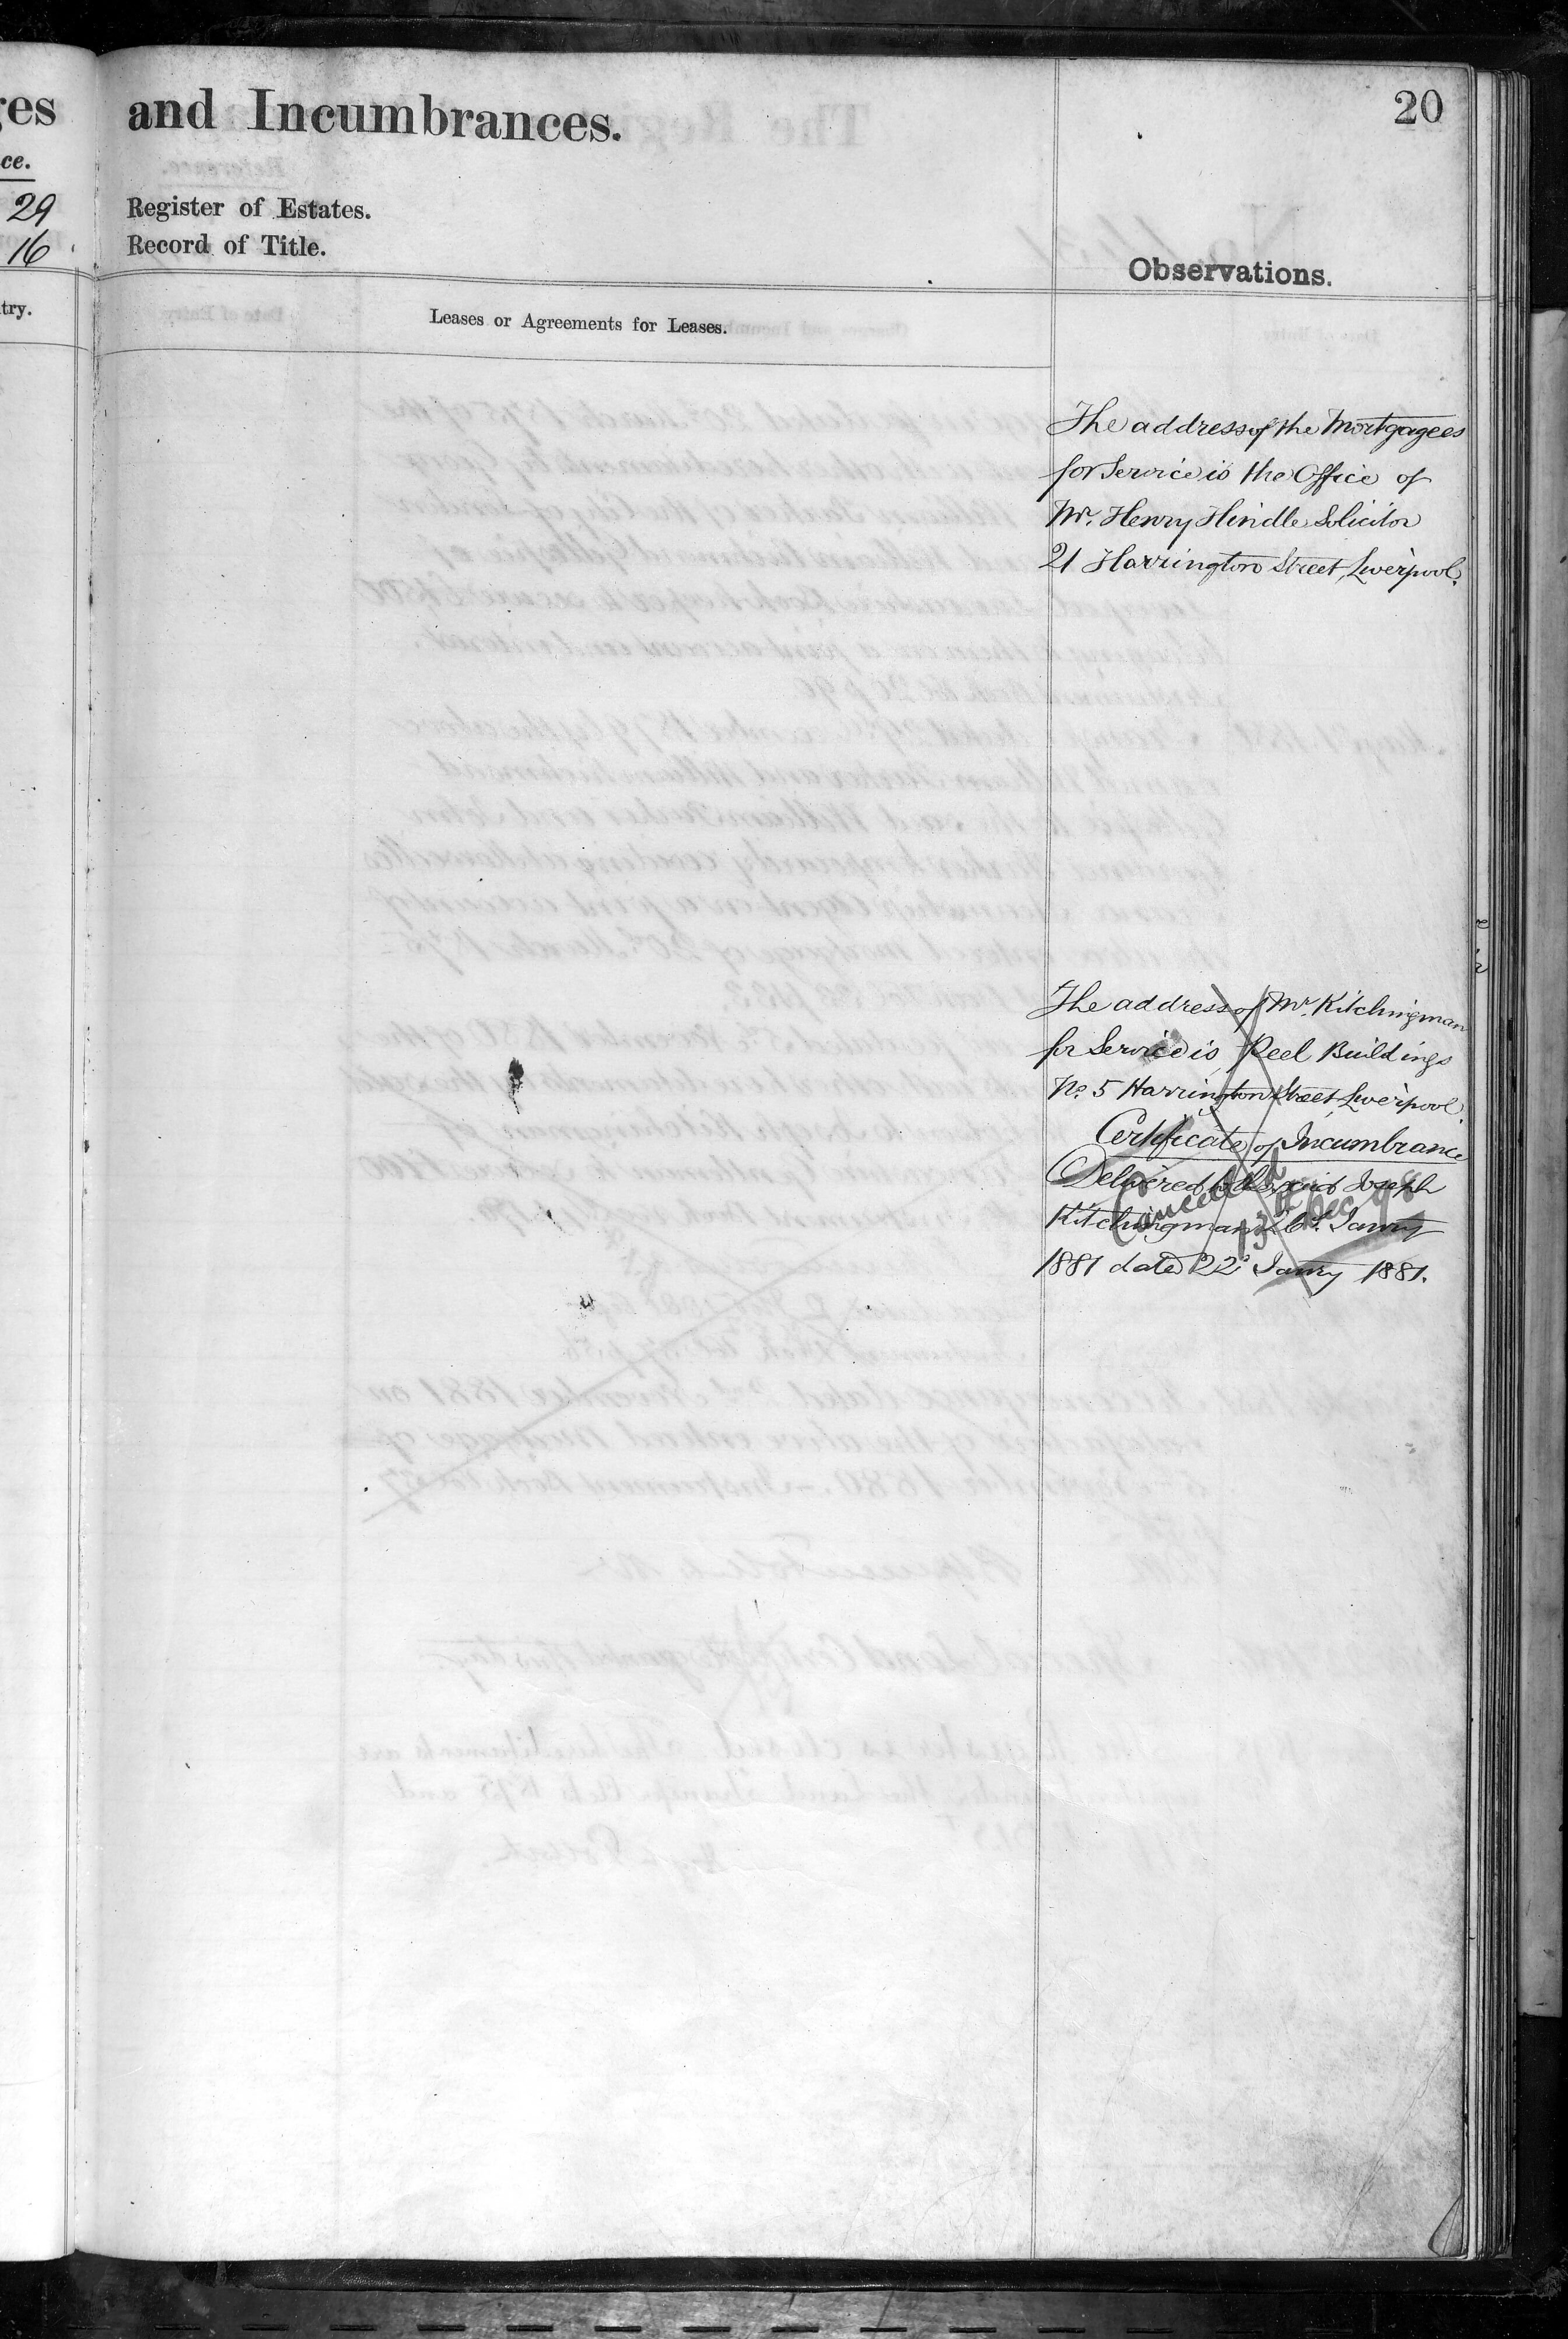 ges and Incumbrances. 20
ce.
29 Register of Estates.
16 Record of Title.
Observations.
try.
Leases or Agreements for Leases.
The address of the Mortgagees
for Service is the Office of
Mr. Henry Hindle Solicitor
21 Harrington Street, Liverpool.
The address of Mr. Kitchingman
for Service is Peel Buildings
No. 5 Harrington Street, Liverpool.
Certificate of Incumbrance
Delivered to the said Joseph
Kitchingman Janry
1881 dated 22d Janry 1881.
Cancelled
13th Dec 98